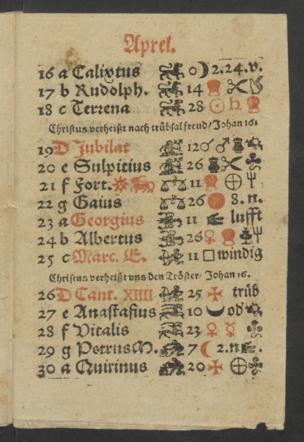 Aprel.
16 a Calixtus 0 ☽ 2.24.v.
17 b Rudolph. 14
18 c Terrena 28 ☉ ♄
Christus verheißt nach trübsal freud/Johan 16
19 D Jubilat 12 ♂
20 e Sulpitius 26
21 f Fort. 11
22 g Gaius 26 8.n.
23 a Georgius 11 lufft
24 b Albertus 26 ♀
25 c Marc. E. 11 □ windig
Christus verheißt vns den Tröster/Johan 16.
26 D Cant. XIIII 25 trüb
27 e Anastasius 10
28 f Vitalis 23 ♀ ☿
29 g Petrus M. 7 ☾ 2.n.
30 a Quirinus 20